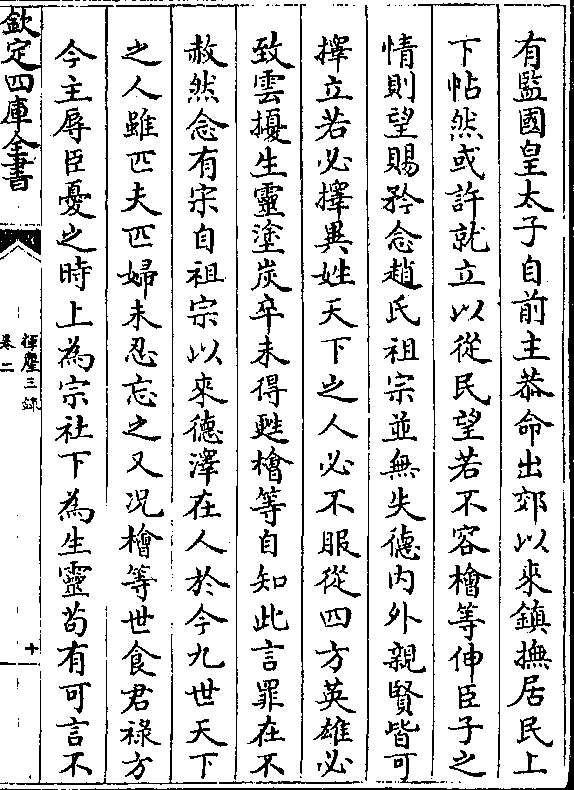 有監國皇太子自前主恭命出郊以來鎮撫居民上
下帖然或許就立以從民望若不容檜等伸臣子之
情則望賜矜念趙氏祖宗並無失徳内外親賢皆可
擇立若必擇異姓天下之人必不服從四方英雄必
致雲擾生靈塗炭卒未得甦檜等自知此言罪在不
赦然念有宋自祖宗以來德澤在人於今九世天下
之人雖匹夫匹婦未忍忘之又况檜等世食君禄方
今主辱臣憂之時上為宗社下為生靈苟有可言不
欽定四庫全書
揮麈三錄
卷二
十